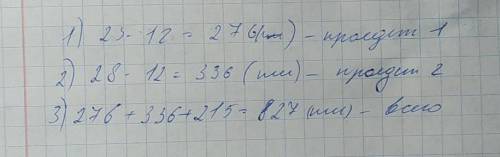 1) 23 - 12 = 276(км) - проедет 1
2) 28 - 12 = 336 (км) - проедет 2
3) 276 + 336 + 215 = 827 (км) - всего